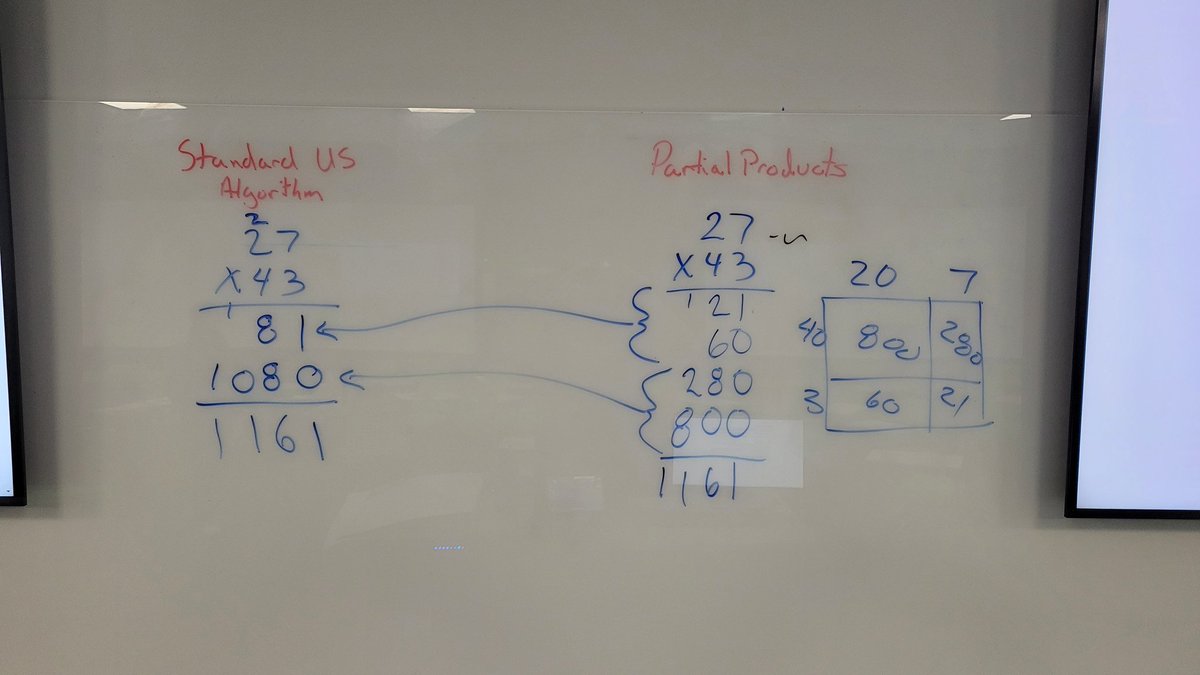 Standard US
Algorithm
2
27
X43
1
81
1080
1161
Partial Products
27
X43
1
21
60
280
800
1161
20 7
40 800 280
3 60 21